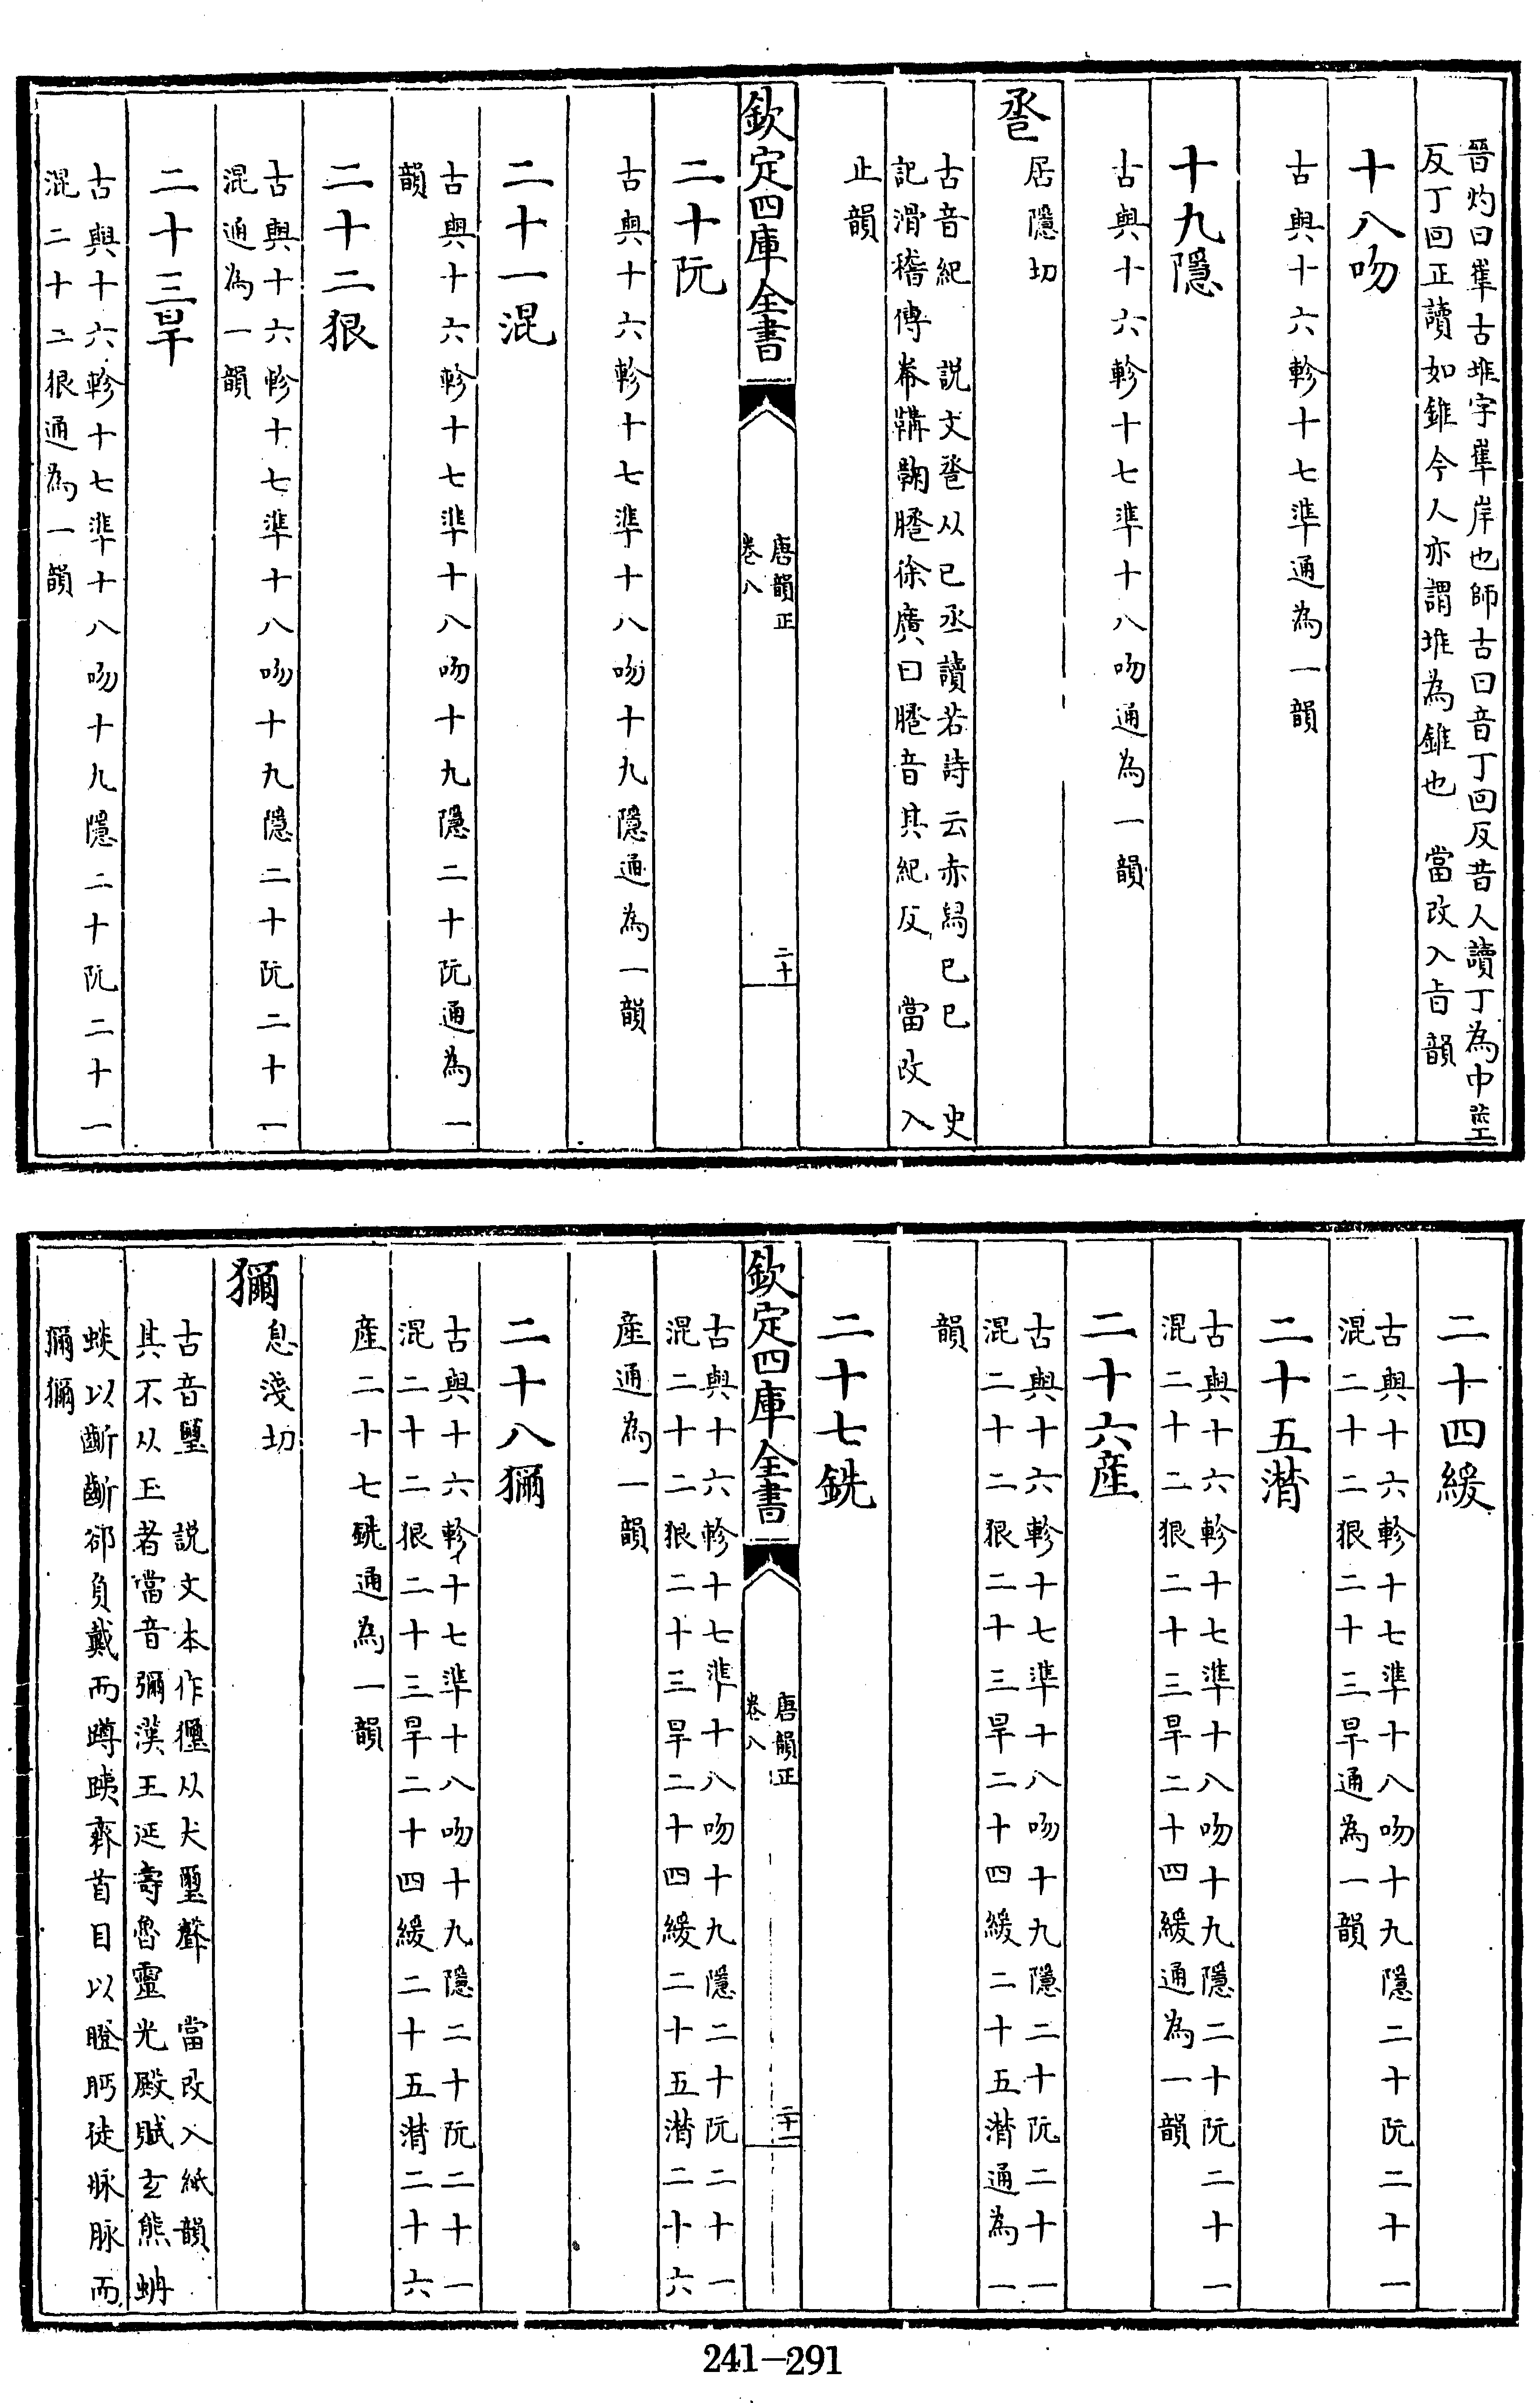 晉灼曰嶊古堆字嶊岸也師古曰音丁回反昔人讀丁為中莖
反丁回正讀如錐今人亦謂堆為錐也　當改入旨韻
十八吻
古與十六軫十七準通為一韻
十九隱
古與十六軫十七準十八吻通為一韻
巹
居隱切
古音紀　說文巹从已丞讀若詩云赤舄已已　史
記滑稽傳帣韝鞠䠆徐廣曰䠆音其紀反　當改入
止韻
欽定四庫全書
唐韻正
卷八
二十
二十阮
古與十六軫十七準十八吻十九隱通為一韻
二十一混
古與十六軫十七準十八吻十九隱二十阮通為一
韻
二十二狠
古與十六軫十七準十八吻十九隱二十阮二十一
混通為一韻
二十三旱
古與十六軫十七準十八吻十九隱二十阮二十一
混二十二狠通為一韻
二十四緩
古與十六軫十七準十八吻十九隱二十阮二十一
混二十二狠二十三旱通為一韻
二十五潸
古與十六軫十七準十八吻十九隱二十阮二十一
混二十二狠二十三旱二十四緩通為一韻
二十六產
古與十六軫十七準十八吻十九隱二十阮二十一
混二十二狠二十三旱二十四緩二十五潸通為一
韻
二十七銑
欽定四庫全書
唐韻正
卷八
二十一
古與十六軫十七準十八吻十九隱二十阮二十一
混二十二狠二十三旱二十四緩二十五潸二十六
產通為一韻
二十八獮
古與十六軫十七準十八吻十九隱二十阮二十一
混二十二狠二十三旱二十四緩二十五潸二十六
產二十七銑通為一韻
獮
息淺切
古音璽　說文本作玃从犬璽聲　當改入紙韻
其不从玉者當音彌漢王延壽魯靈光殿賦玄熊蚺
蛺以齗齗郤負戴而蹲跠齊首目以瞪眄徒脈脈而
獮獮
241-291